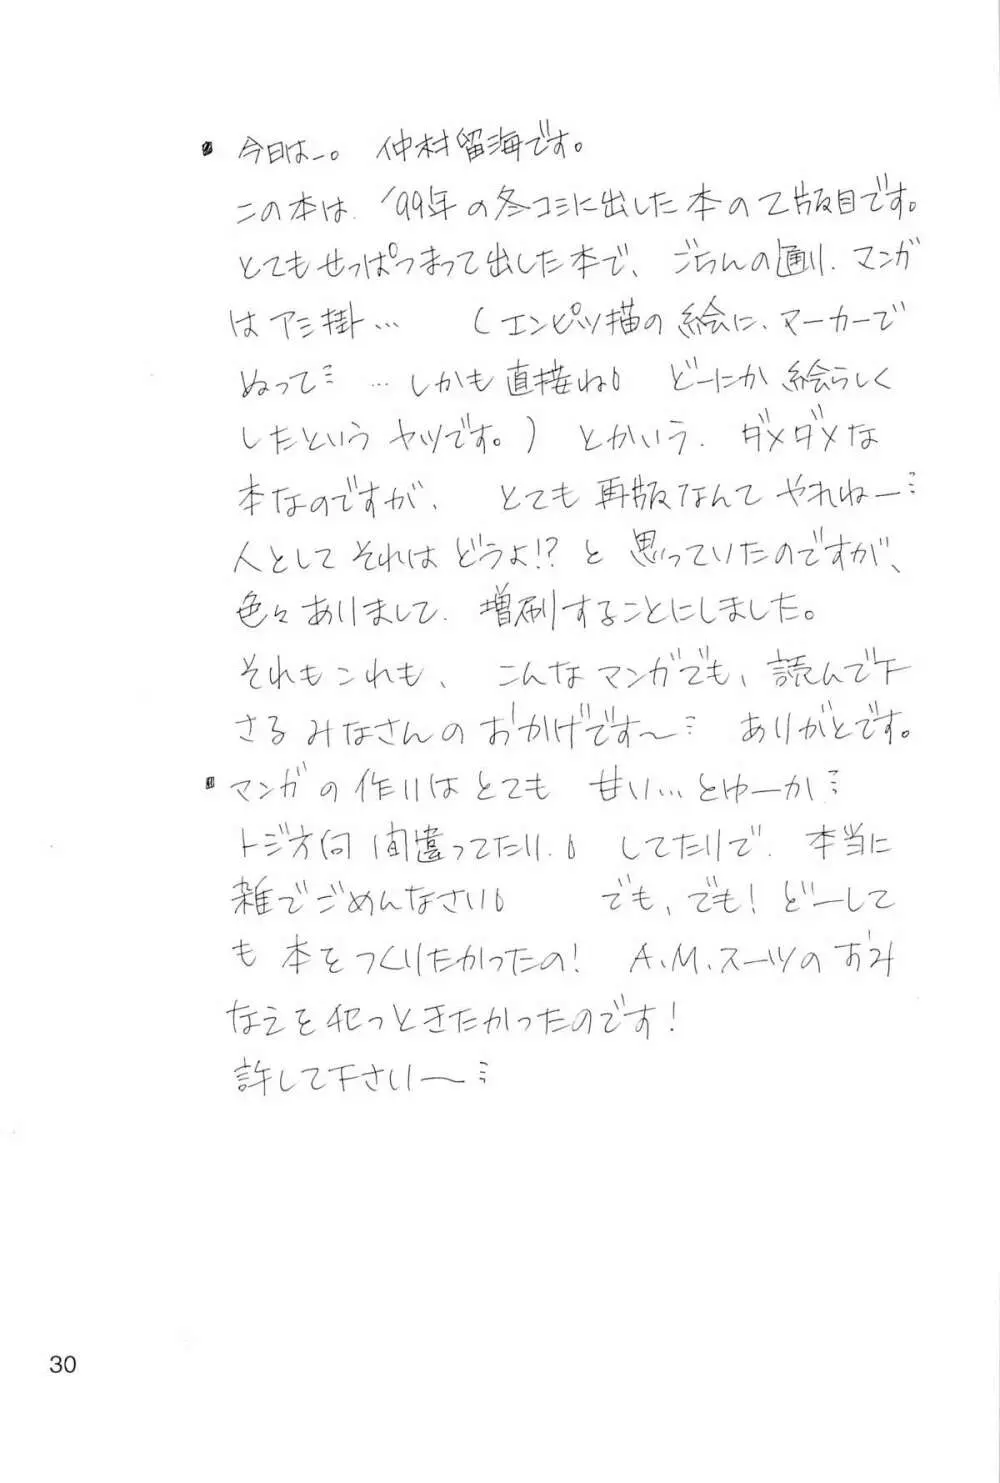 ・今日はー。 仲村留海です。
この本は、'99年の冬コミに出した本の2版目です。
とてもせっぱつまって出した本で、ごらんの通り、マンガ
はアミ掛… (エンピツ描の絵に、マーカーで
ぬって… …しかも直接ね。 どーにか絵らしく
したというヤツです。) とかいう、ダメダメな
本なのですが、 とても再版なんてやれねー…
人としてそれはどうよ!? と思っていたのですが、
色々ありまして、増刷することにしました。
それもこれも、 こんなマンガでも、読んで下
さるみなさんのおかげです〜… ありがとです。
・マンガの作りはとても 甘い…とゆーか…
トジ方向間違ってたり、。してたりで、本当に
雑でごめんなさい。 でも、でも! どーして
も本をつくりたかったの! A.M.スーツのおみ
なえを犯っときたかったのです!
許して下さい〜…
30